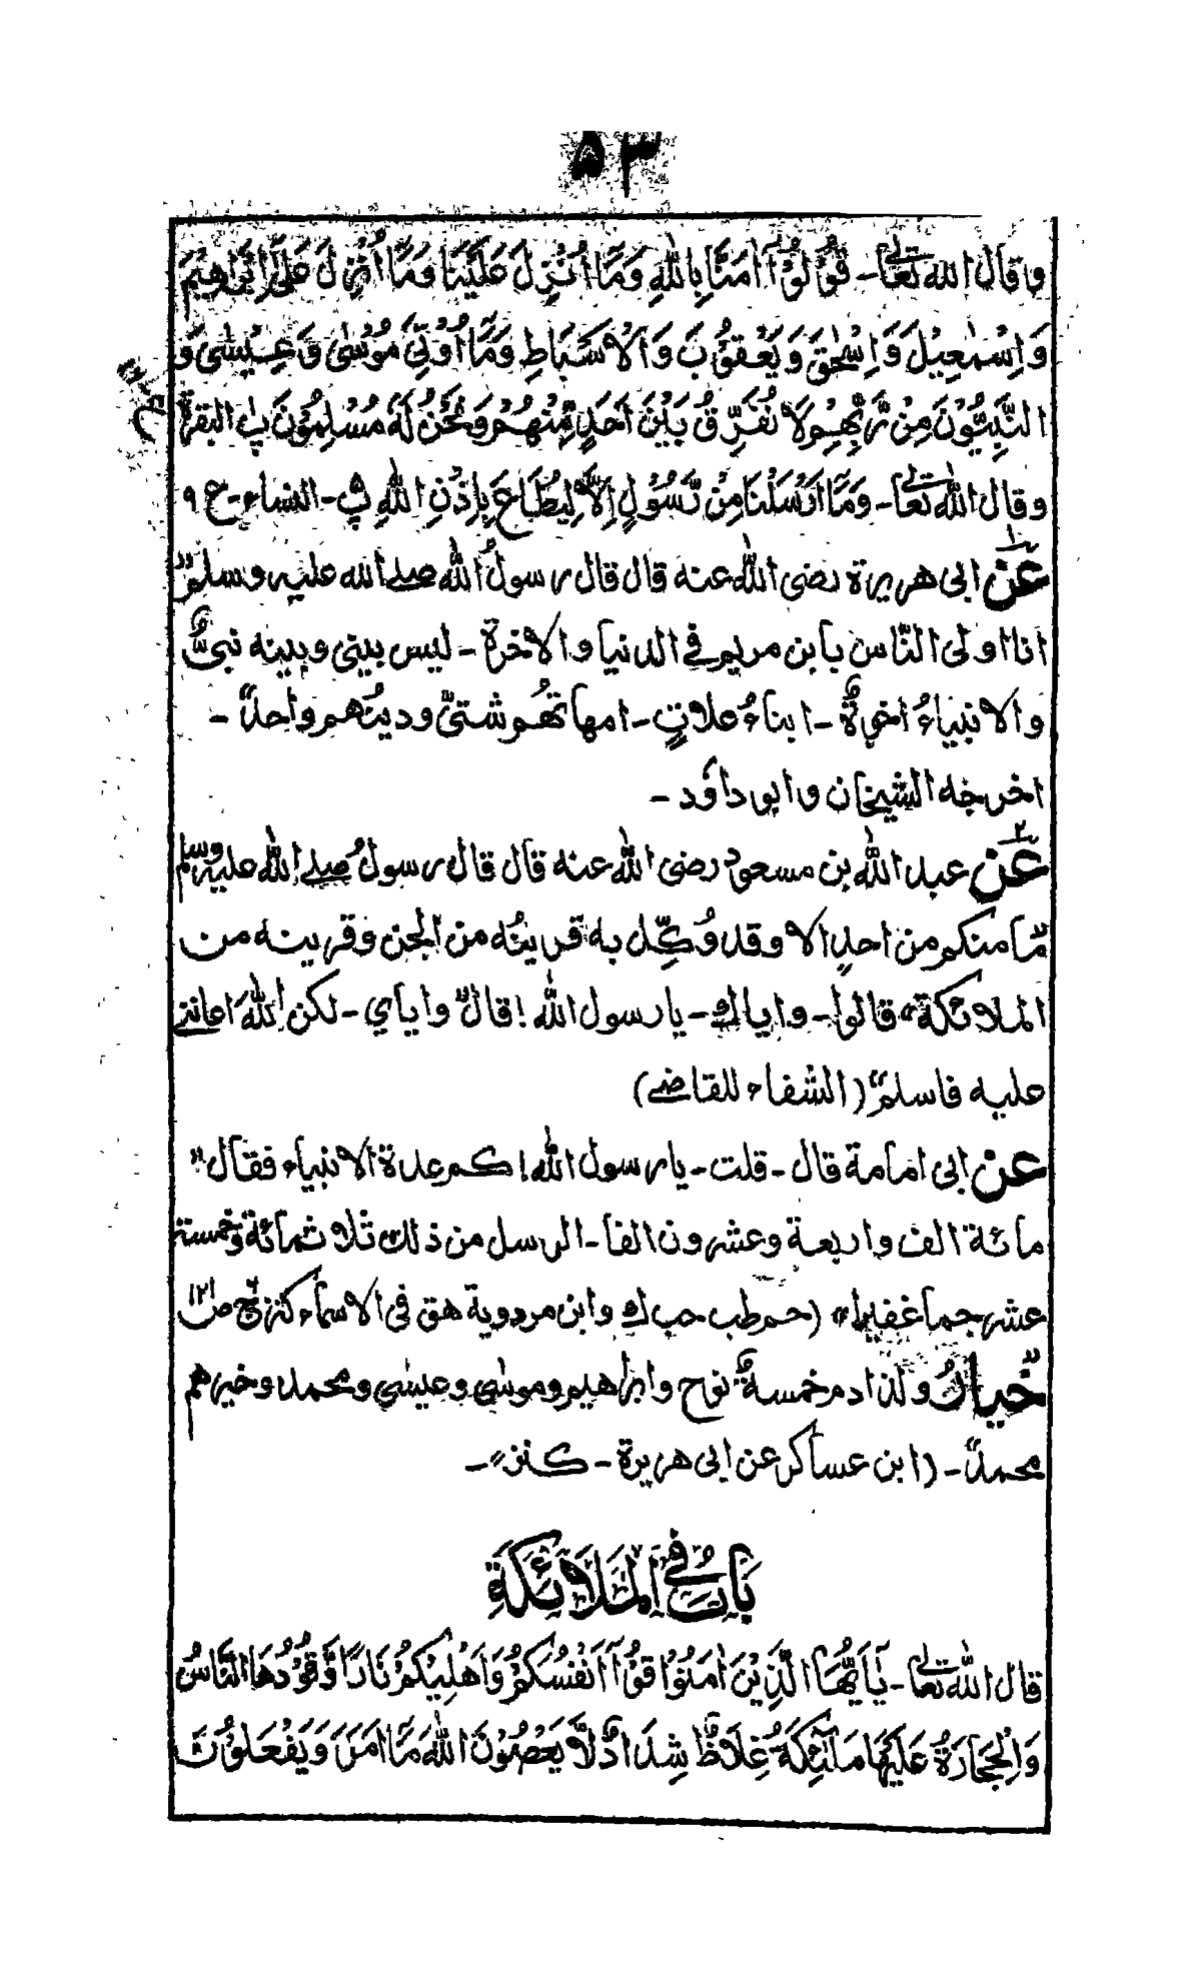 ۵۳
وقال الله تعالى - قُوْلُوْٓا اٰمَنَّا بِاللّٰهِ وَمَآ اُنْزِلَ عَلَيْنَا وَمَآ اُنْزِلَ عَلٰٓى اِبْرَاهِيْمَ
وَاِسْمٰعِيْلَ وَاِسْحٰقَ وَيَعْقُوْبَ وَالْاَسْبَاطِ وَمَآ اُوْتِيَ مُوْسٰى وَعِيْسٰى وَ
النَّبِيُّوْنَ مِنْ رَّبِّهِمْ لَا نُفَرِّقُ بَيْنَ اَحَدٍ مِّنْهُمْ وَنَحْنُ لَهٗ مُسْلِمُوْنَ پ البقرة
وقال الله تعالى - وَمَآ اَرْسَلْنَا مِنْ رَّسُوْلٍ اِلَّا لِيُطَاعَ بِاِذْنِ اللّٰهِ پ - النساء - ع ۹
عَنْ ابى هريرة رضى الله عنه قال قال رسول الله صلے الله عليه وسلم "
انا اولى النّاس بابن مريم فے الدنيا والاخرة - ليس بينى وبينه نبىٌّ
والانبياءُ اخوةٌ - ابناءُ علاتٍ - امهاتُهُم شتىّ ودينُهم واحدٌ" -
اخرجه الشيخان وابو داؤد -
عَنْ عبد الله بن مسعود رضى الله عنه قال قال رسولُ صلے الله عليه وسلم
"مّا منكم من احدٍ الا وقد وُكِّل به قرينُه من الجن وقرينه من
الملائكة" قالوا - واياك - يا رسول الله! قال" واياي - لكن اللهَ اعاننے
عليه فاسلم" (الشفاء للقاضے)
عن ابى امامة قال - قلت - يا رسول الله! كم عدة الانبياء فقال"
مائة الف واربعة وعشرون الفا - الرسل من ذلك ثلاثمائة وخمسة
عشر جما غفيرا" (حم طب حب ك وابن مردوية هق فى الاسماء كنز ج ۶ ص ۱۲۱
"خيارُ ولد ادم خمسةٌ نوح وابراهيم وموسٰى وعيسٰى ومحمد وخيرهم
محمدٌ" - (ابن عساكر عن ابى هريرة - كنز" -
بَابٌ فِى الْمَلَائِكَةِ
قال الله تعالى - يٰٓاَيُّهَا الَّذِيْنَ اٰمَنُوْا قُوْٓا اَنْفُسَكُمْ وَاَهْلِيْكُمْ نَارًا وَّقُوْدُهَا النَّاسُ
وَالْحِجَارَةُ عَلَيْهَا مَلٰٓئِكَةٌ غِلَاظٌ شِدَادٌ لَّا يَعْصُوْنَ اللّٰهَ مَآ اَمَرَ وَيَفْعَلُوْنَ